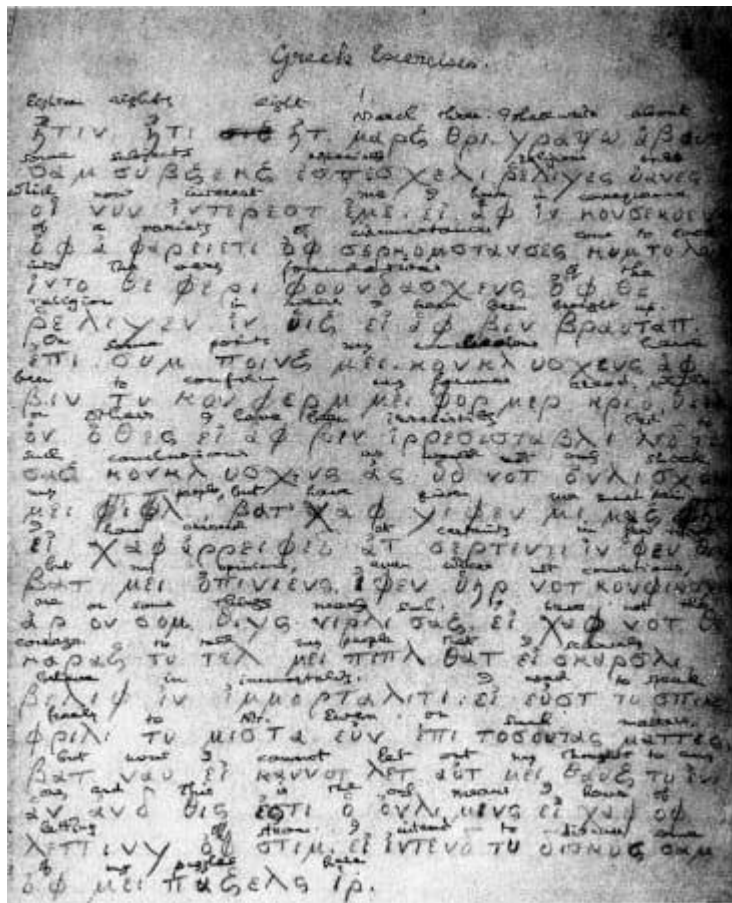 Greek Exercises.
Eighteen eighty eight March three. I shall write about
ἤτιν ἤτι ἤτ. μαρξ θρι. γραψω ἀβαυτ
some subjects especially religious ones
σαμ συβξεκξ ἐσπεσχελι ρελιγες ὐανες
which now interest me. I have in consequence
οἱ νυν ἰντερεστ ἐμε. εἰ ἀφ ἰν κονσεκυενς
of a variety of circumstances come to look
ὀφ ἀ φαρειετι ὀφ σερκομστανσες κυμ το λουκ
into the very foundations of the
ἰντο θε φερι φουνδασχενς ὀφ θε
religion in which I have been brought up.
ρελιγεν ἰν ὑιξ εἰ ἀφ βιν βραυταπ.
On some points my conclusions have
ἐπι. συμ ποινξ μει. κονκλυσχενς ἀφ
been to confirm my former creed, while
βιν τυ κονφερμ μει φορμερ κριδ,
on others I have been irresistibly led to
ὀν ὀθες εἰ ἀφ βεν ἰρρεσισταβλι λεδ το
such conclusions as would not only shock
σαξ κονκλυσχενς ἀς ὐδ νοτ ὀνλι σχοκ
my people, but have given me much pain
μει πιπλ, βατ χαφ γιφεν μι μαξ
I have arrived at certainty in few things
εἰ χαφ ἀρρειφεδ ἀτ σερτιντι ἰν φευ θιγς
but my opinions, even where not convictions,
βατ μει ὀπινιενς, ἰφεν ὑηρ νοτ κονφικσχενς
are on some things nearly such. I have not the
ἀρ ον σομ. θιγς νιρλι σαξ. εἰ χαφ νοτ θε
courage to tell my people that I scarcely
καραξ τυ τελ μει πιπλ θατ εἰ σκαρσλι
believe in immortality. I used to speak
βελιφ ἰν ἰμμορταλιτι. εἰ εὐστ τυ σπικ
freely to Mr. Ewen on such matters,
φριλι τυ μιστα εὐν ἐπι τοσουτας ματτες,
but now I cannot let out my thoughts to any
βατ ναυ εἰ καννοτ λετ αὐτ μει θαυξ τυ ἐνι
one, and this is the only means I have of
ἀν ανδ θις ἐστι ὁ ὀνλι μινς εἰ χαφ ὀφ
letting off steam. I intend to discuss some
λεττινγ ὀφ στιμ. εἰ ἰντενδ τυ δισκυς σαμ
of my puzzles here
ὀφ μει παζελς ἰρ.